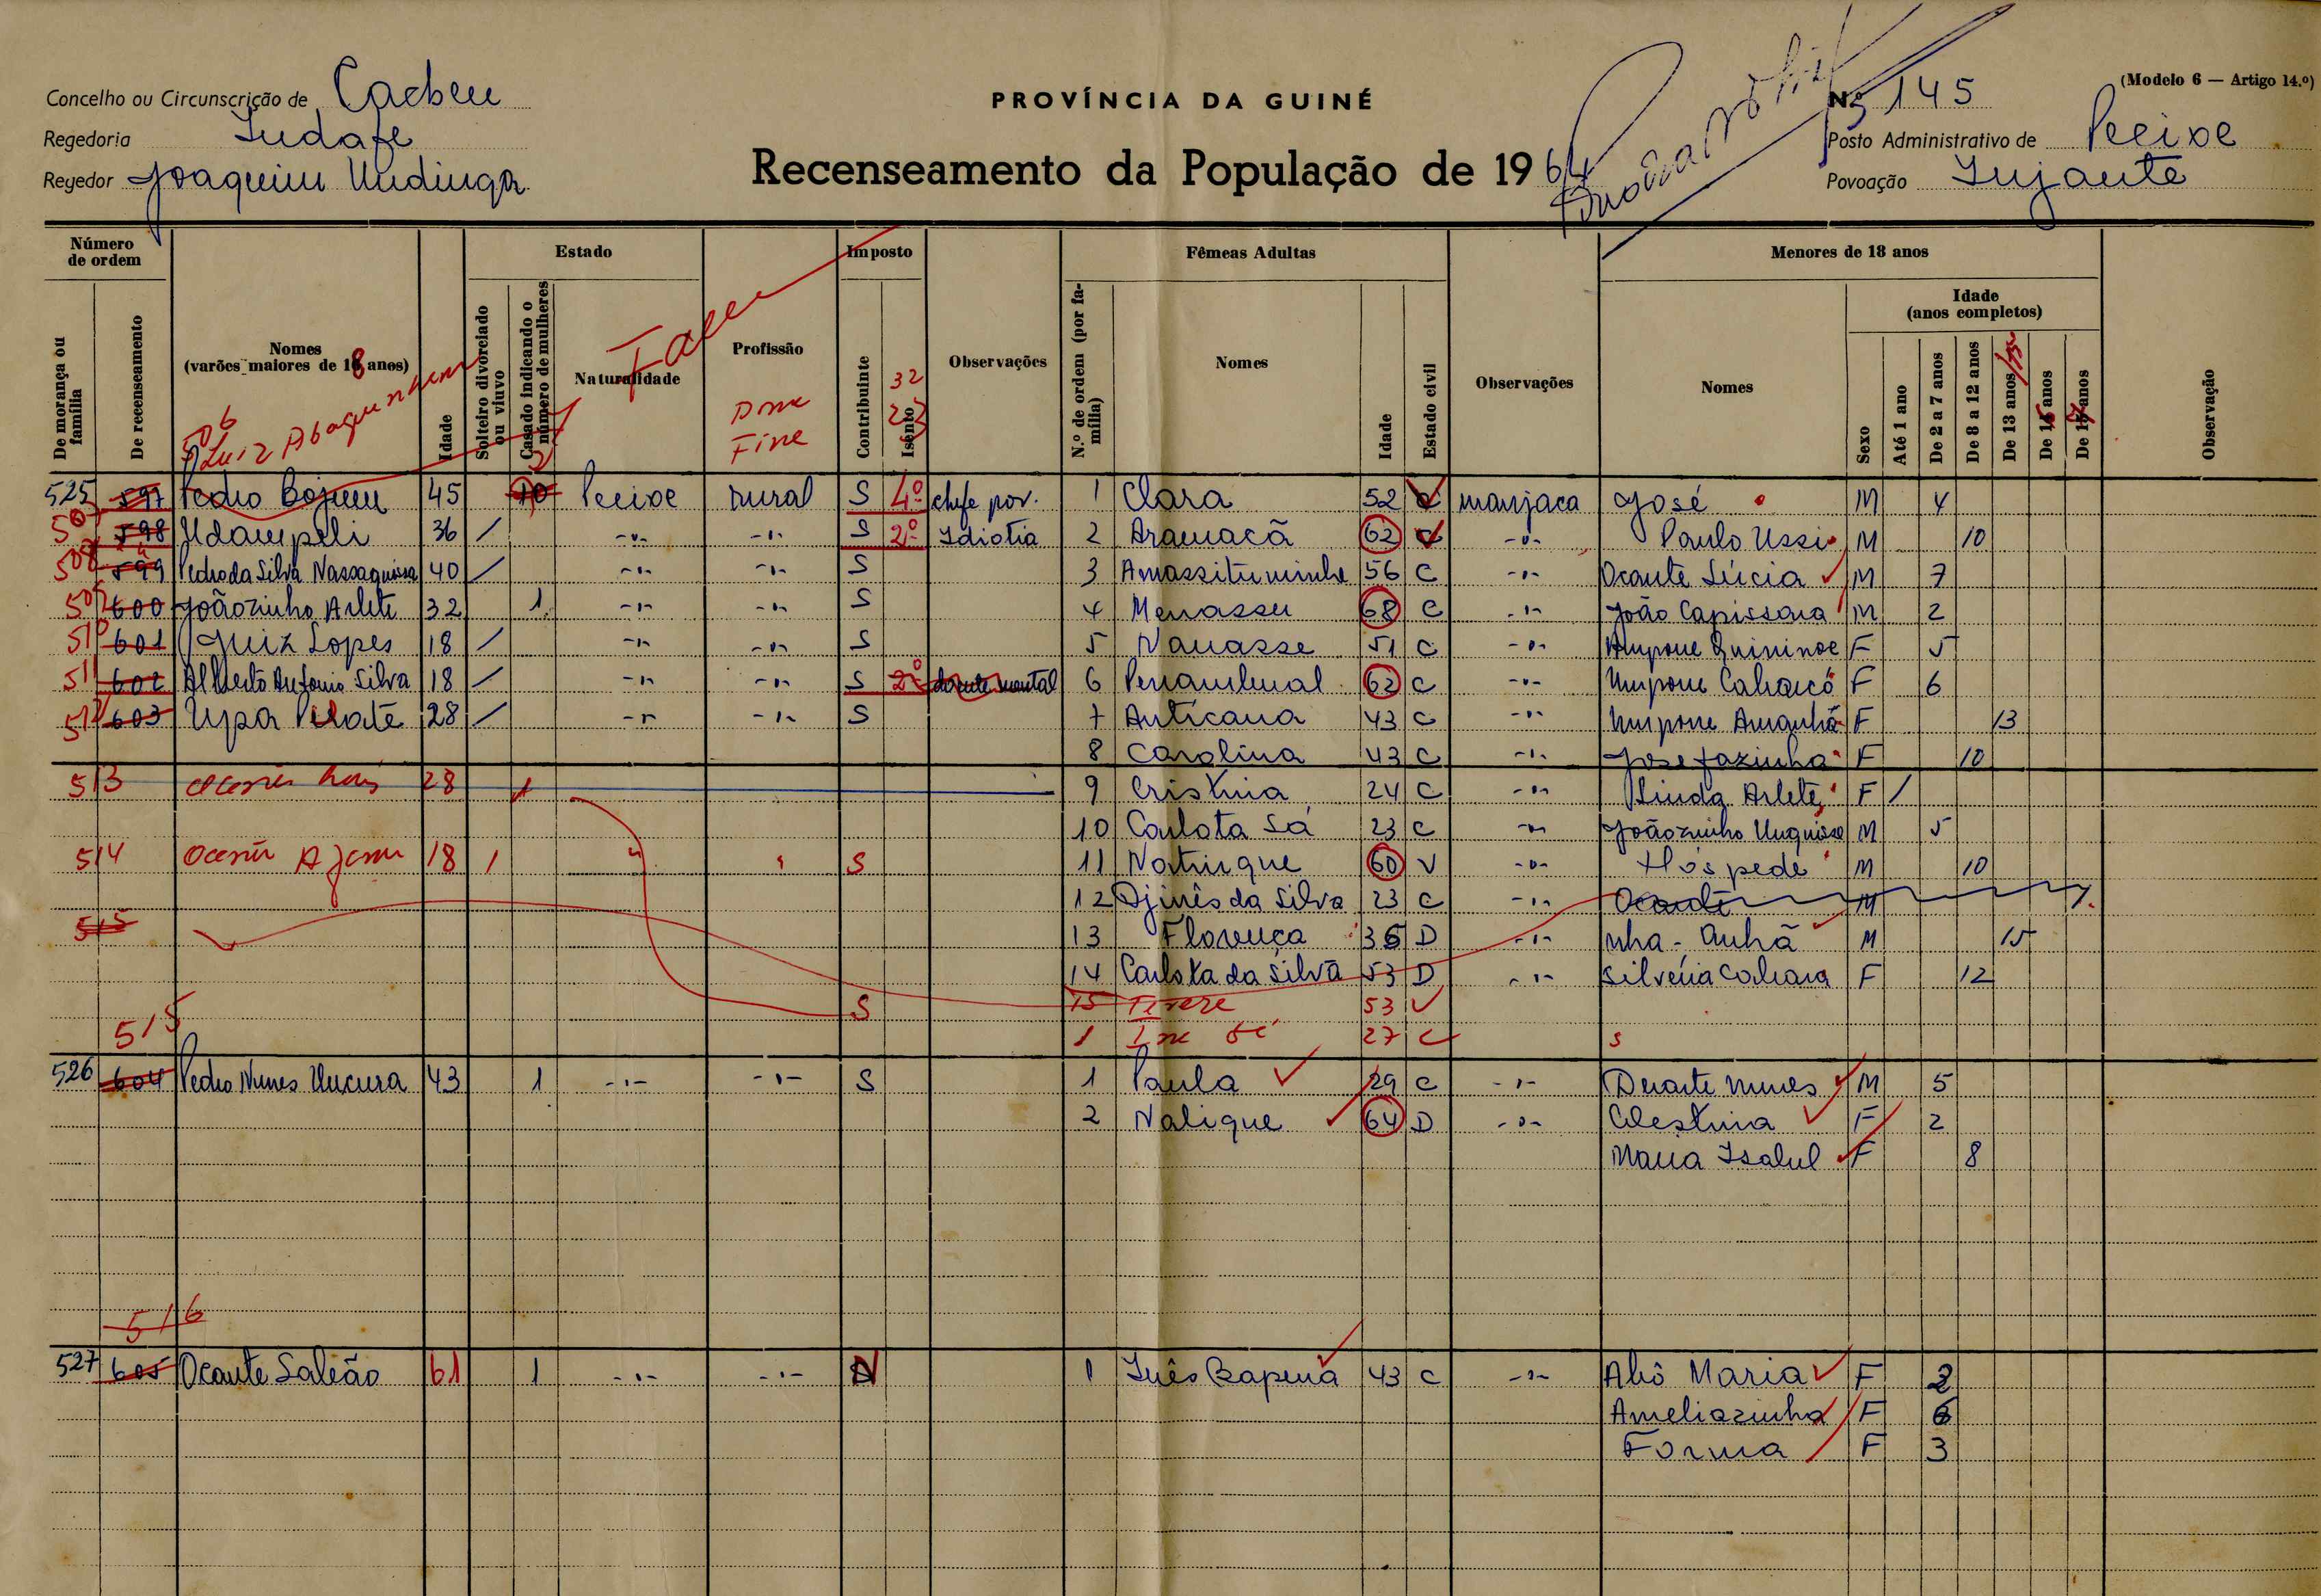 Concelho ou Circunscrição de Cacheu
Regedoria Judafe
Regedor Joaquim Undinga
PROVÍNCIA DA GUINÉ
Recenseamento da População de 1964
(Modelo 6 — Artigo 14.º)
N.º 145
Posto Administrativo de Pecixe
Povoação Injante
Número de ordem
De morança ou família
De recenseamento
Nomes
(varões maiores de 18 anos)
Idade
Estado
Solteiro divorciado ou viuvo
Casado indicando o número de mulheres
Naturalidade
Profissão
Imposto
Contribuinte
Isento
Observações
Fêmeas Adultas
N.º de ordem (por família)
Nomes
Idade
Estado civil
Observações
Menores de 18 anos
Nomes
Sexo
Idade
(anos completos)
Até 1 ano
De 2 a 7 anos
De 8 a 12 anos
De 13 anos
anos
anos
Observação
506
Luiz
32
23
525 597 Pedro 45 10 Pecixe rural S 4º chefe pov. 1 Clara 52 C manjaca José M 4
507 598 36 / -"- -"- S 2º Idiotia 2 Aramacã 62 C -"- Paulo Ussi M 10
508 599 Pedro da Silva 40 / -"- -"- S 3 Amassituminhe 56 C -"- Ocante Lúcia M 7
509 600 Joãozinho Arlete 32 1 -"- -"- S 4 Menassu 68 C -"- João Capissana M 2
510 601 Luiz Lopes 18 / -"- -"- S 5 Nanasse 51 C -"- F 5
511 602 Alberto Antonio Silva 18 / -"- -"- S 2º doente mental 6 62 C -"- F 6
512 603 Upa 28 / -"- -"- S 7 Anticana 43 C -"- F 13
8 Carolina 43 C -"- Josefazinha F 10
513 28 1 9 Cristina 24 C -"- Linda Arlete F /
10 Carlota Sá 23 C -"- Joãozinho M 5
514 18 / " " S 11 Natinque 60 V -"- Hóspede M 10
12 Djinês da Silva 23 C -"- Ocante M
515 13 Florença 36 D -"- nha-Anhã M 15
14 Carlota da Silva 53 D -"- F 12
S 15 53 V
1 27 C
515
526 604 Pedro Nunes 43 1 -"- -"- S 1 Paula 29 C -"- Duarte Nunes M 5
2 Nalique 64 D -"- Celestina F 2
Maria Isabel F 8
516
527 605 Ocante Saleão 61 1 -"- -"- N 1 Inês Bapená 43 C -"- Abô Maria F 2
Ameliazinha F 6
Forma F 3